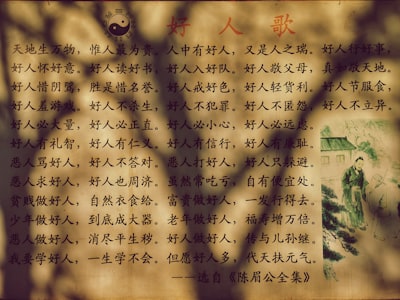 好人歌
天地生万物，惟人最为贵。人中有好人，又是人之瑞。好人行好事，
好人怀好意。好人读好书，好人入好队。好人敬父母，真如敬天地。
好人惜阴骘，胜是惜名誉。好人戒好色，好人轻货利。好人节服食，
好人羞游戏。好人不杀生，好人不犯罪。好人不匿怨，好人不立异。
好人必大量，好人必正直。好人必小心，好人必远虑。
好人有礼智，好人有仁义。好人有信行，好人有廉耻。
恶人骂好人，好人不答对。恶人打好人，好人只躲避。
恶人求好人，好人也周济。虽然常吃亏，自有便宜处。
贫贱做好人，自然衣食给。富贵做好人，一发行得去。
少年做好人，到底成大器。老年做好人，福寿增万倍。
恶人做好人，消尽平生秽。好人做好人，传与儿孙继。
我要学好人，一生学不会。但愿好人多，代天扶元气。
——选自《陈眉公全集》